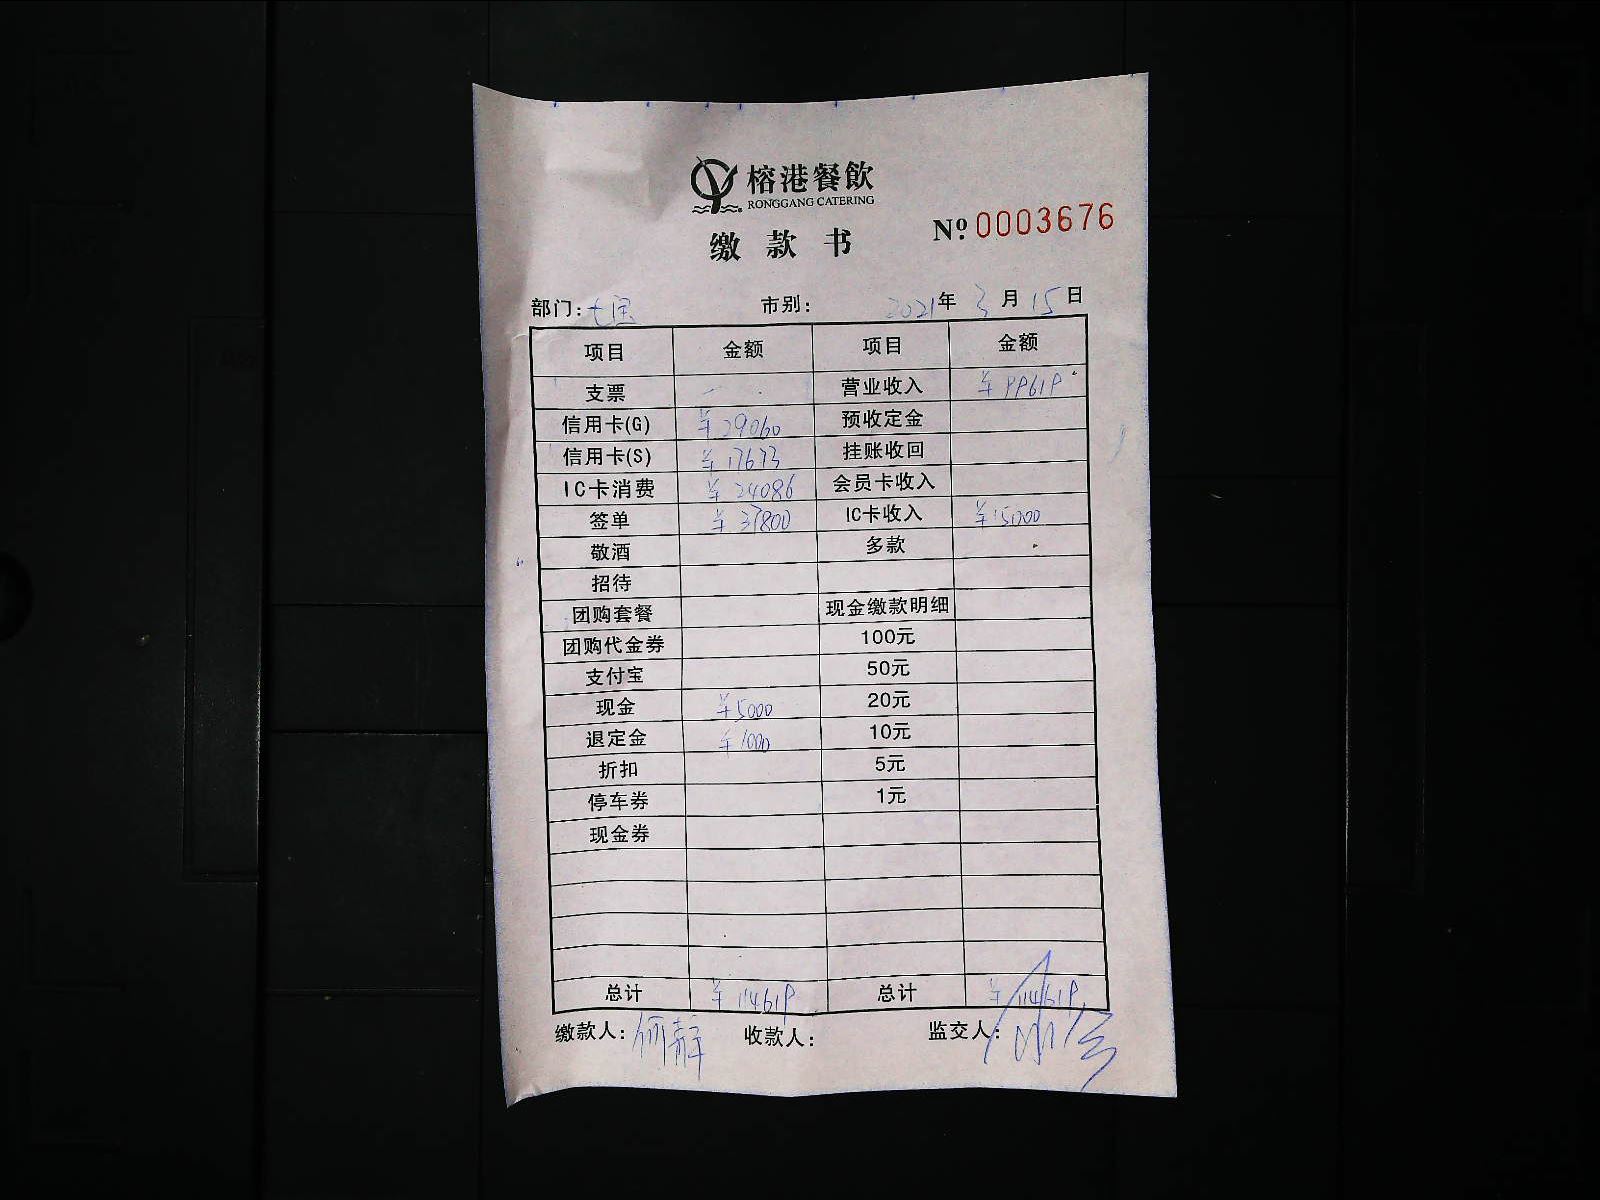 榕港餐飲
RONGGANG CATERING
缴款书
Nº 0003676
部门: 七宝 市别: 2021年 3月 15日
项目 金额 项目 金额
支票 营业收入 ¥99619
信用卡(G) ¥29060 预收定金
信用卡(S) ¥17673 挂账收回
IC卡消费 ¥24086 会员卡收入
签单 ¥37800 IC卡收入 ¥15000
敬酒 多款
招待
团购套餐 现金缴款明细
团购代金券 100元
支付宝 50元
现金 ¥5000 20元
退定金 ¥1000 10元
折扣 5元
停车券 1元
现金券
总计 ¥114619 总计 ¥114619
缴款人: 何静 收款人: 监交人: